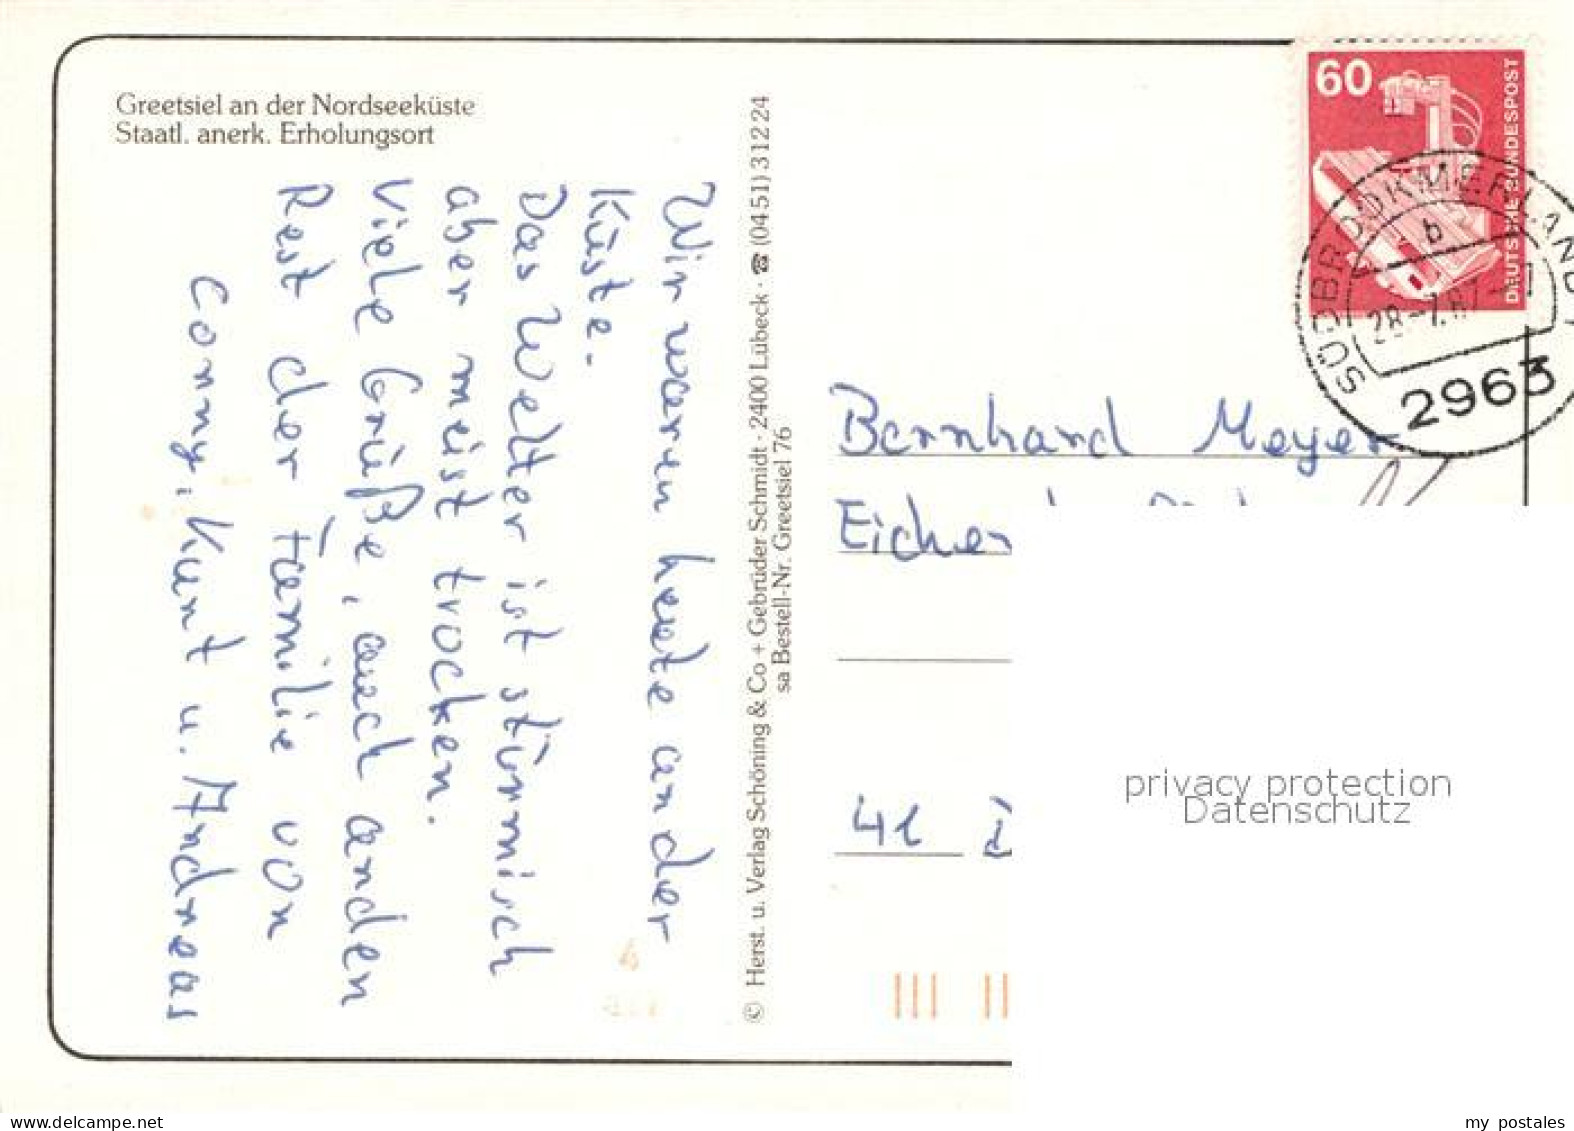 Greetsiel an der Nordseeküste
Staatl. anerk. Erholungsort
Wir waren heute an der
Küste.
Das Wetter ist stürmisch
aber meist trocken.
Viele Grüße, auch an den
Rest der Familie von
Conny, Kurt u. Andreas
© Herst. u. Verlag Schöning & Co + Gebrüder Schmidt · 2400 Lübeck · ☎ (0451) 31224
sa Bestell-Nr. Greetsiel 76
60
DEUTSCHE BUNDESPOST
SÜDBROOKMERLAND 1
b
28.-7.87-
2963
Bernhard Meyer
41
privacy protection
Datenschutz
delcampe.net
my_postales